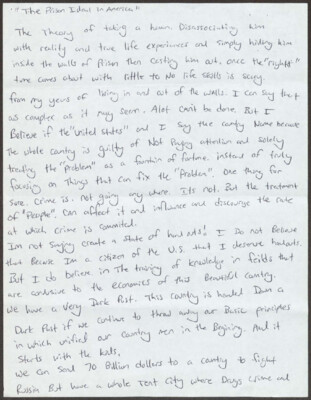 "The Prison Ideas in America"
The Theory of taking a human. Disassociating him
with reality and true life experiences and simply hiding him
inside the walls of Prison then casting him out, once the "right"
time comes about with little to No life skills is scary.
from my years of living in and out of the walls. I can say that
as complex as it may seem. Alot can be done. But I
Believe if the "united states" and I say the county Name because
the whole country is guilty of Not Paying attention and solely
treating the "problem" as a function of fortune. instead of truly
focusing on Things that can fix the "Problem". One thing for
sure. Crime is. not going any where. It's not. But the treatment
of "People". Can affect it and influence and discourage the rate
at which crime is commited.
Im not saying create a state of hand outs! I Do not Believe
that Because Im a citizen of the U.S. that I deserve handouts.
But I do believe in The training of knowledge in feilds that
are conducive to the economics of this Beautiful country.
We have a Very Dark Past. This country is headed Down a
Dark Past if we continue to throw away our Basic principles
in which unified our country men in the Begining. And it
starts with the kids.
We can send 70 Billion dollars to a country to fight
Russia But have a whole Tent City where Drugs crime and